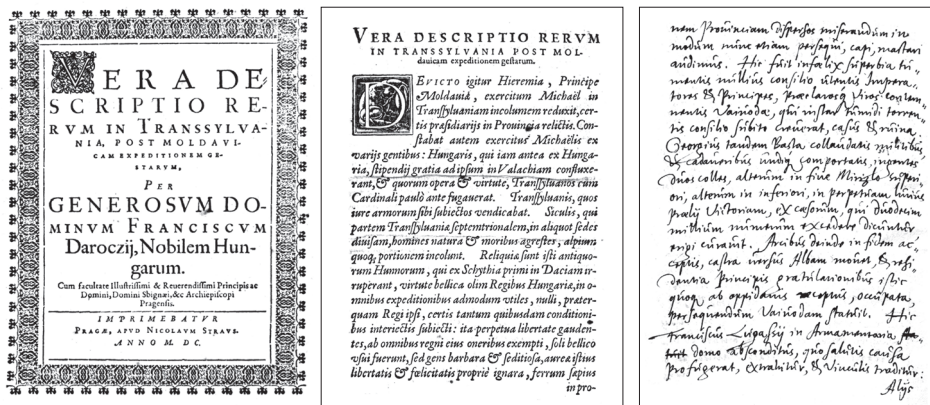 VERA DE
SCRIPTIO RE-
RVM IN TRANSSYLVA-
NIA, POST MOLDAVI-
CAM EXPEDITIONEM GE-
STARVM,
PER
GENEROSVM DO-
MINVM FRANCISCVM
Daroczij, Nobilem Hun-
garum.
Cum facultate Illustrissimi & Reuerendissimi Principis ac
Domini, Domini Sbignæi, &c Archiepiscopi
Pragensis.
IMPRIMEBATVR
PRAGÆ, APVD NICOLAVM STRAVS.
ANNO M. DC.
VERA DESCRIPTIO RERVM
IN TRANSSYLVANIA POST MOL-
dauicam expeditionem gestarum.
DEVICTO igitur Hieremia, Principe
Moldauiæ, exercitum Michaël in
Transsyluaniam incolumem reduxit, cer-
tis præsidiarijs in Prouincia relictis. Con-
stabat autem exercitus Michaëlis ex
varijs gentibus: Hungaris, qui iam antea ex Hunga-
ria, stipendij gratia ad ipsum in Valachiam confluxe-
rant, & quorum opera & virtute, Transsyluanos cum
Cardinali paulò ante fugauerat. Transyluanis, quos
iure armorum sibi subiectos vendicabat. Siculis, qui
partem Transyluaniæ septemtrionalem, in aliquot sedes
diuisam, homines natura & moribus agrestes, alpium
quoq; portionem incolunt. Reliquiæ sunt isti antiquo-
rum Hunnorum, qui ex Schythia primi in Daciam ir-
ruperant, virtute bellica olim Regibus Hungariæ, in o-
mnibus expeditionibus admodum vtiles, nulli, præter-
quam Regi ipsi, certis tantum quibusdam conditioni-
bus interiectis subiecti: ita perpetua libertate gauden-
tes, ab omnibus regni eius oneribus exempti, soli bellico
vsui fuerunt, sed gens barbara & seditiosa, aureæ istius
libertatis & fœlicitatis propriè ignara, ferrum sæpius
in pro-
nem Prouinciam dispersos miserandum in
modum nunc etiam persequi, capi, mactari
audimus. Hic fuit infœlix superbia tu-
mentis nullius consilio utentis Impera-
tores & Principes, Præclarosq Viros contem-
nentis Vaiuoda, qui instar tumidi torren-
tis consilio subito creuerat, casus & ruina.
Georgius tandem Basta collaudatis militibus
& cadaueribus undiq comportatis, ingentes
duos colles, alterum in fine Mirizlo superi-
ori, alterum in inferiori, in perpetuam huius
Prælij Victoriam, ex cæsorum, qui duodecim
millium numerum excedere dicuntur
erigi curauit. Arcibus deinde in fidem ac-
ceptis, castra versus Albam mouet, & resi-
dentia Principis gratulationibus istic
quoq ab oppidanis exceptus, occupata,
persequendum Vaiuodam statuit. Hic
Franciscus Lugassij in Armamentaria
domo absconditus, quo salutis causa
profugerat, extrahitur, & Vinculis traditur:
Alijs